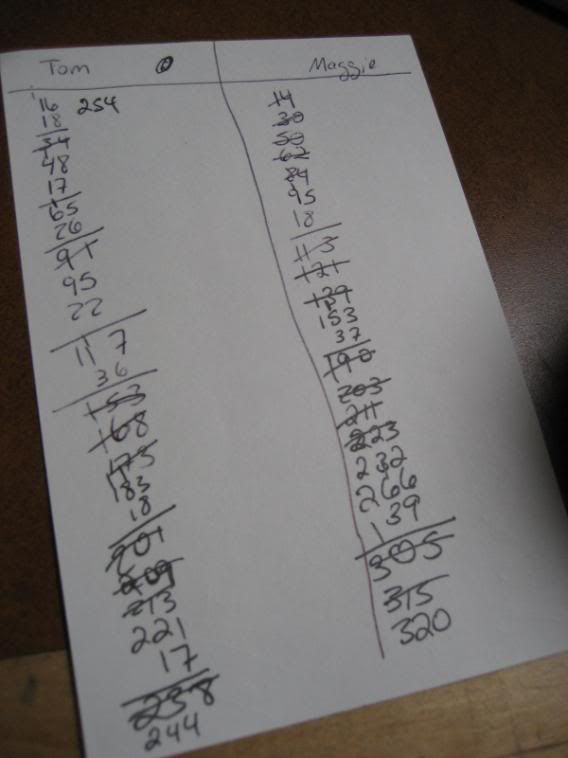 Tom
Maggie
16 254
18
34
48
17
65
26
91
95
22
117
36
153
168
175
183
18
201
209
213
221
17
238
244
14
30
50
62
84
95
18
113
121
139
153
37
190
203
211
223
232
266
39
305
315
320